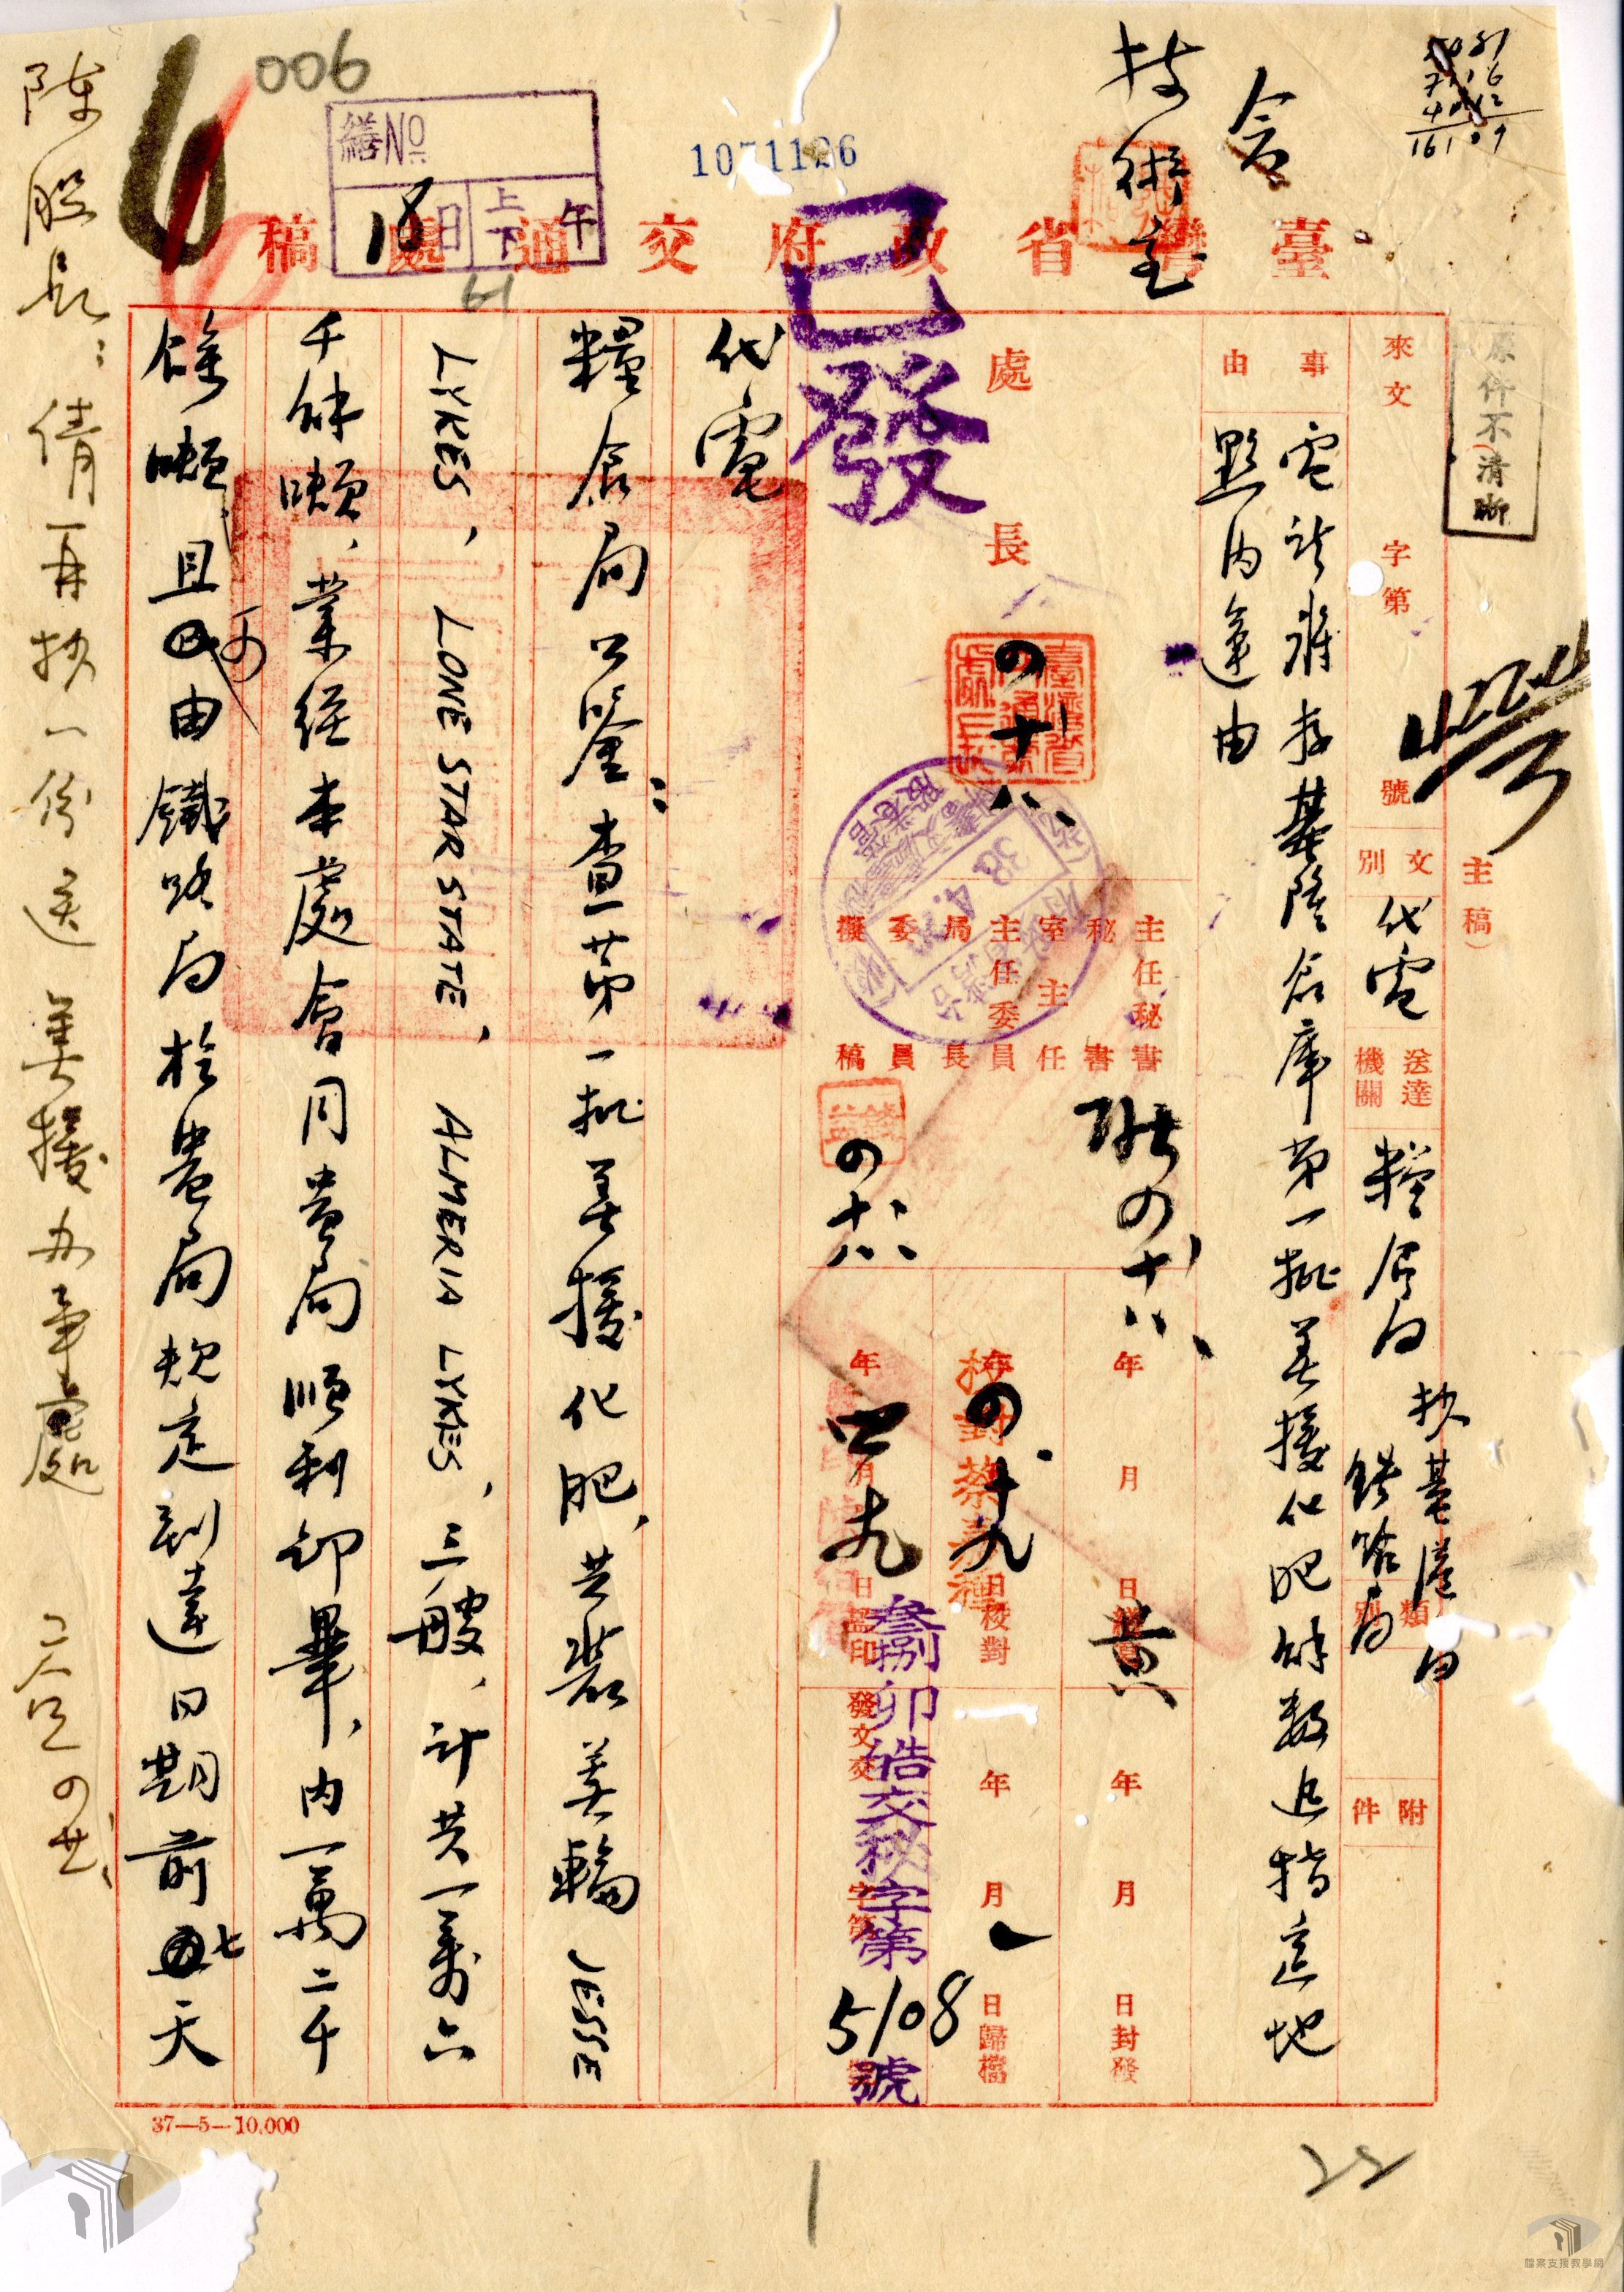 5031
7116
161
令
技術室
006
繕No
18日
上下午
1071126
臺灣省政府交通處稿
已發
原件不清晰
來文 字第 號
文別 代電
送達機關 糧食局 抄基港局 鐵路局
類別
附件
主稿)
事由
電請將存基隆倉庫第一批美援化肥餘數迅指定地
點內運由
處長
の十八、
臺灣省
主任秘書
秘書
室主任
主任委員
局長
委員
擬稿
の十八、
の十八
38.4.
年 月 日繕寫 黃
年 月 日校對 の十九
校對蔡
年 月 日蓋印 四 九
年 月 日封發
年 月 日歸檔 一
發文交 字第 號
參捌卯皓交秘字第5108號
代電
糧食局公鑒：查第一批美援化肥，共裝美輪JESSE
LYKES、LONE STAR STATE、ALMERIA LYKES、三艘，計共一萬六
千餘噸，業經本處會同貴局順利卸畢，內一萬二千
餘噸，且可由鐵路局於貴局規定到達日期前七天
陳股長：倩再抄一份送美援办事處
の廿、
37—5—10.000
1
22
檔案支援教學網